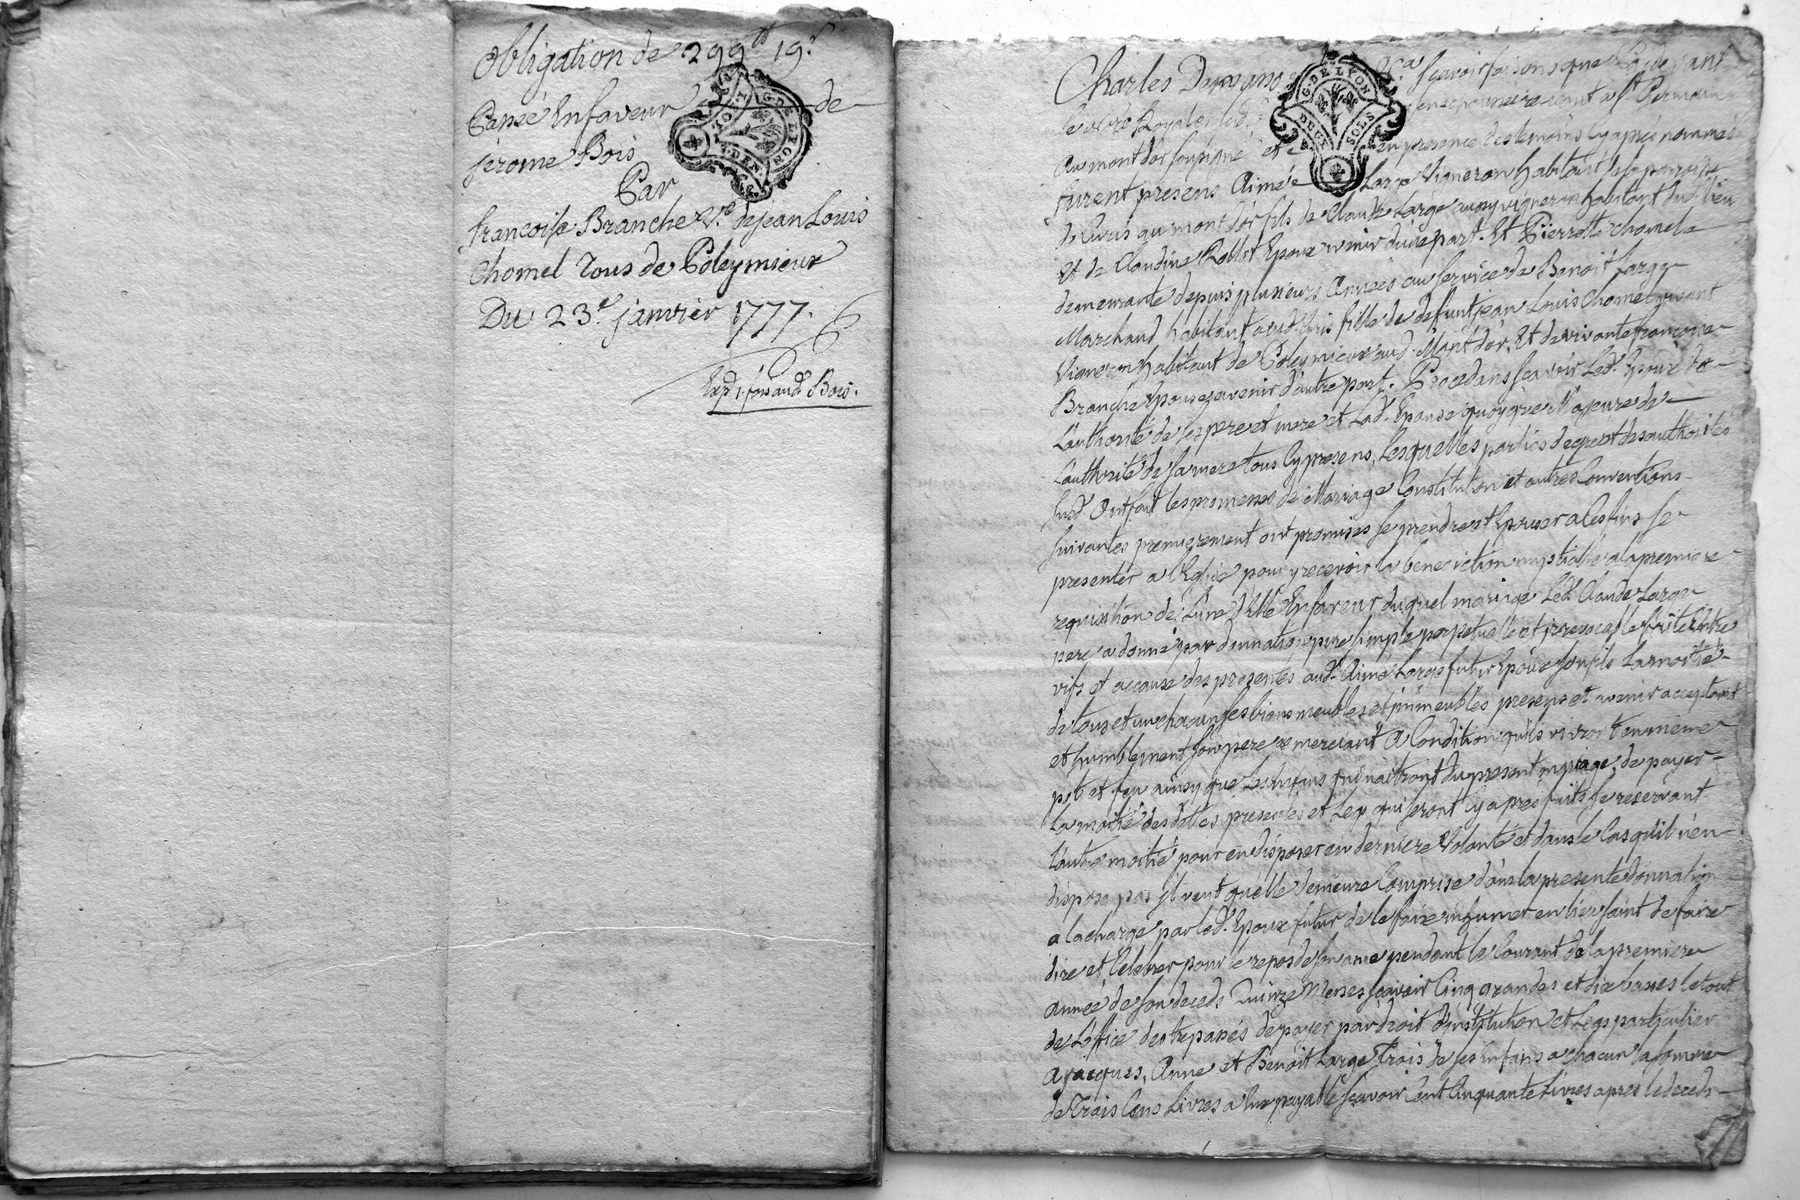 Obligation de 299tt 19s
Passé Enfaveur de
jerome Bois
Par
francoise Branche Ve. de jean Louis
Chomel Tous de Poleymieux
Du 23e. janvier 1777.
Exp. 1. fois aud. Bois.
G. DE LYON
DEUX SOLS
Charles Scavoir faisons que Pardevant
le no.re Royal
au mont d'or soussigné et en presence des temoins cy aprés nommés
furent presens Aimé Large Vigneron habitant de la paroisse
de Curis au mont d'or fils de Claude Large aussy vigneron habitant dud. lieu
et de Claudine Epoux avenir d'une part. Et Pierrette Chomel
demeurante depuis plusieurs Années au service de Benoit Large
Marchand habitant aud. Curis fille de defunt jean Louis Chomel vivant
Vigneron habitant de Poleymieux aud. Mont d'or, Et de vivante francoise
Branche Epouse avenir d'autre part. Procedans scavoir Led. Epoux de
L'authorité de ses pere et mere et Lad. Epouse quoyque Majeure de
L'authorité de sa mere tous cy presens, Lesquelles parties de gré et des authorités
susd. Ont fait les promesses de Mariage Constitution et autres Conventions
suivantes premierement ont promises se prendre et Epouser a les fins se
presenter a l'Eglise pour y recevoir la benediction nuptialle a la premiere
requisition de L'une d'Elle En faveur duquel mariage Led. Claude Large
pere a donné par donnation pure simple perpetuelle et irrevocable faite Entre
vifs et a cause des presentes aud. Aimé Large futur Epoux son fils La moitié
de tous et un chacun ses biens meubles et immeubles presens et avenir acceptant
et humblement son pere remerciant A Condition qu'ils vivront en même
pot et feu ainsy que Les Enfans qui naitront du present mariage, de payer
La moitié des dettes presentes et Legs qui seront cy apres faits se reservant
L'autre moitié pour en disposer en derniere Volonté et dans le Cas qu'il n'en
dispose pas il veut qu'elle demeure Comprise dans la presente donnation
a la charge par led. Epoux futur de le faire inhumer en lieu saint de faire
dire et Celebrer pour le repos de son ame pendant le Courant de la premiere
année de son deceds Quinze Messes scavoir Cinq grandes et dix basses le tout
de L'office des trepassés de payer par droit d'institution et Legs particulier
a jacques, Anne et Benoit Large Trois de ses Enfans a chacun la somme
de Trois Cens Livres a Eux payable scavoir Cent Cinquante Livres apres le deceds